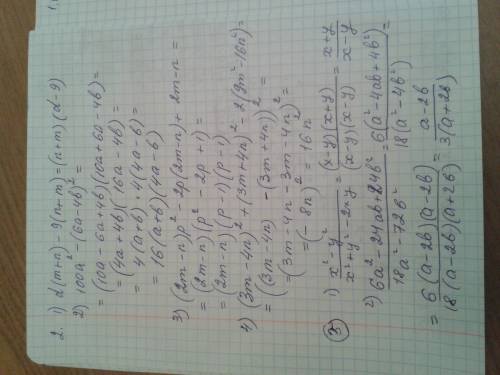 2. 1) d(m+n) - 9(n+m) = (n+m)(d-9)
2) 100a² - (6a-4b)² =
= (10a - 6a + 4b)(10a + 6a - 4b) =
= (4a + 4b)(16a - 4b) =
= 4(a+b) · 4(4a-b) =
= 16(a+b)(4a-b)
3) (2m-n)p² - 2p(2m-n) + 2m-n =
= (2m-n)(p² - 2p + 1) =
= (2m-n)(p-1)(p-1)
4) (3m-4n)² + (3m+4n)² - 2(9m²-16n²) =
= ((3m-4n) - (3m+4n))² =
= (3m-4n-3m-4n)² =
= (-8n)² = 16n
3 1) x²-y² / x²+y²-2xy = (x-y)(x+y) / (x-y)(x-y) = x+y / x-y
2) 6a²-24ab+24b² / 18a²-72b² = 6(a²-4ab+4b²) / 18(a²-4b²) =
= 6(a-2b)(a-2b) / 18(a-2b)(a+2b) = a-2b / 3(a+2b)